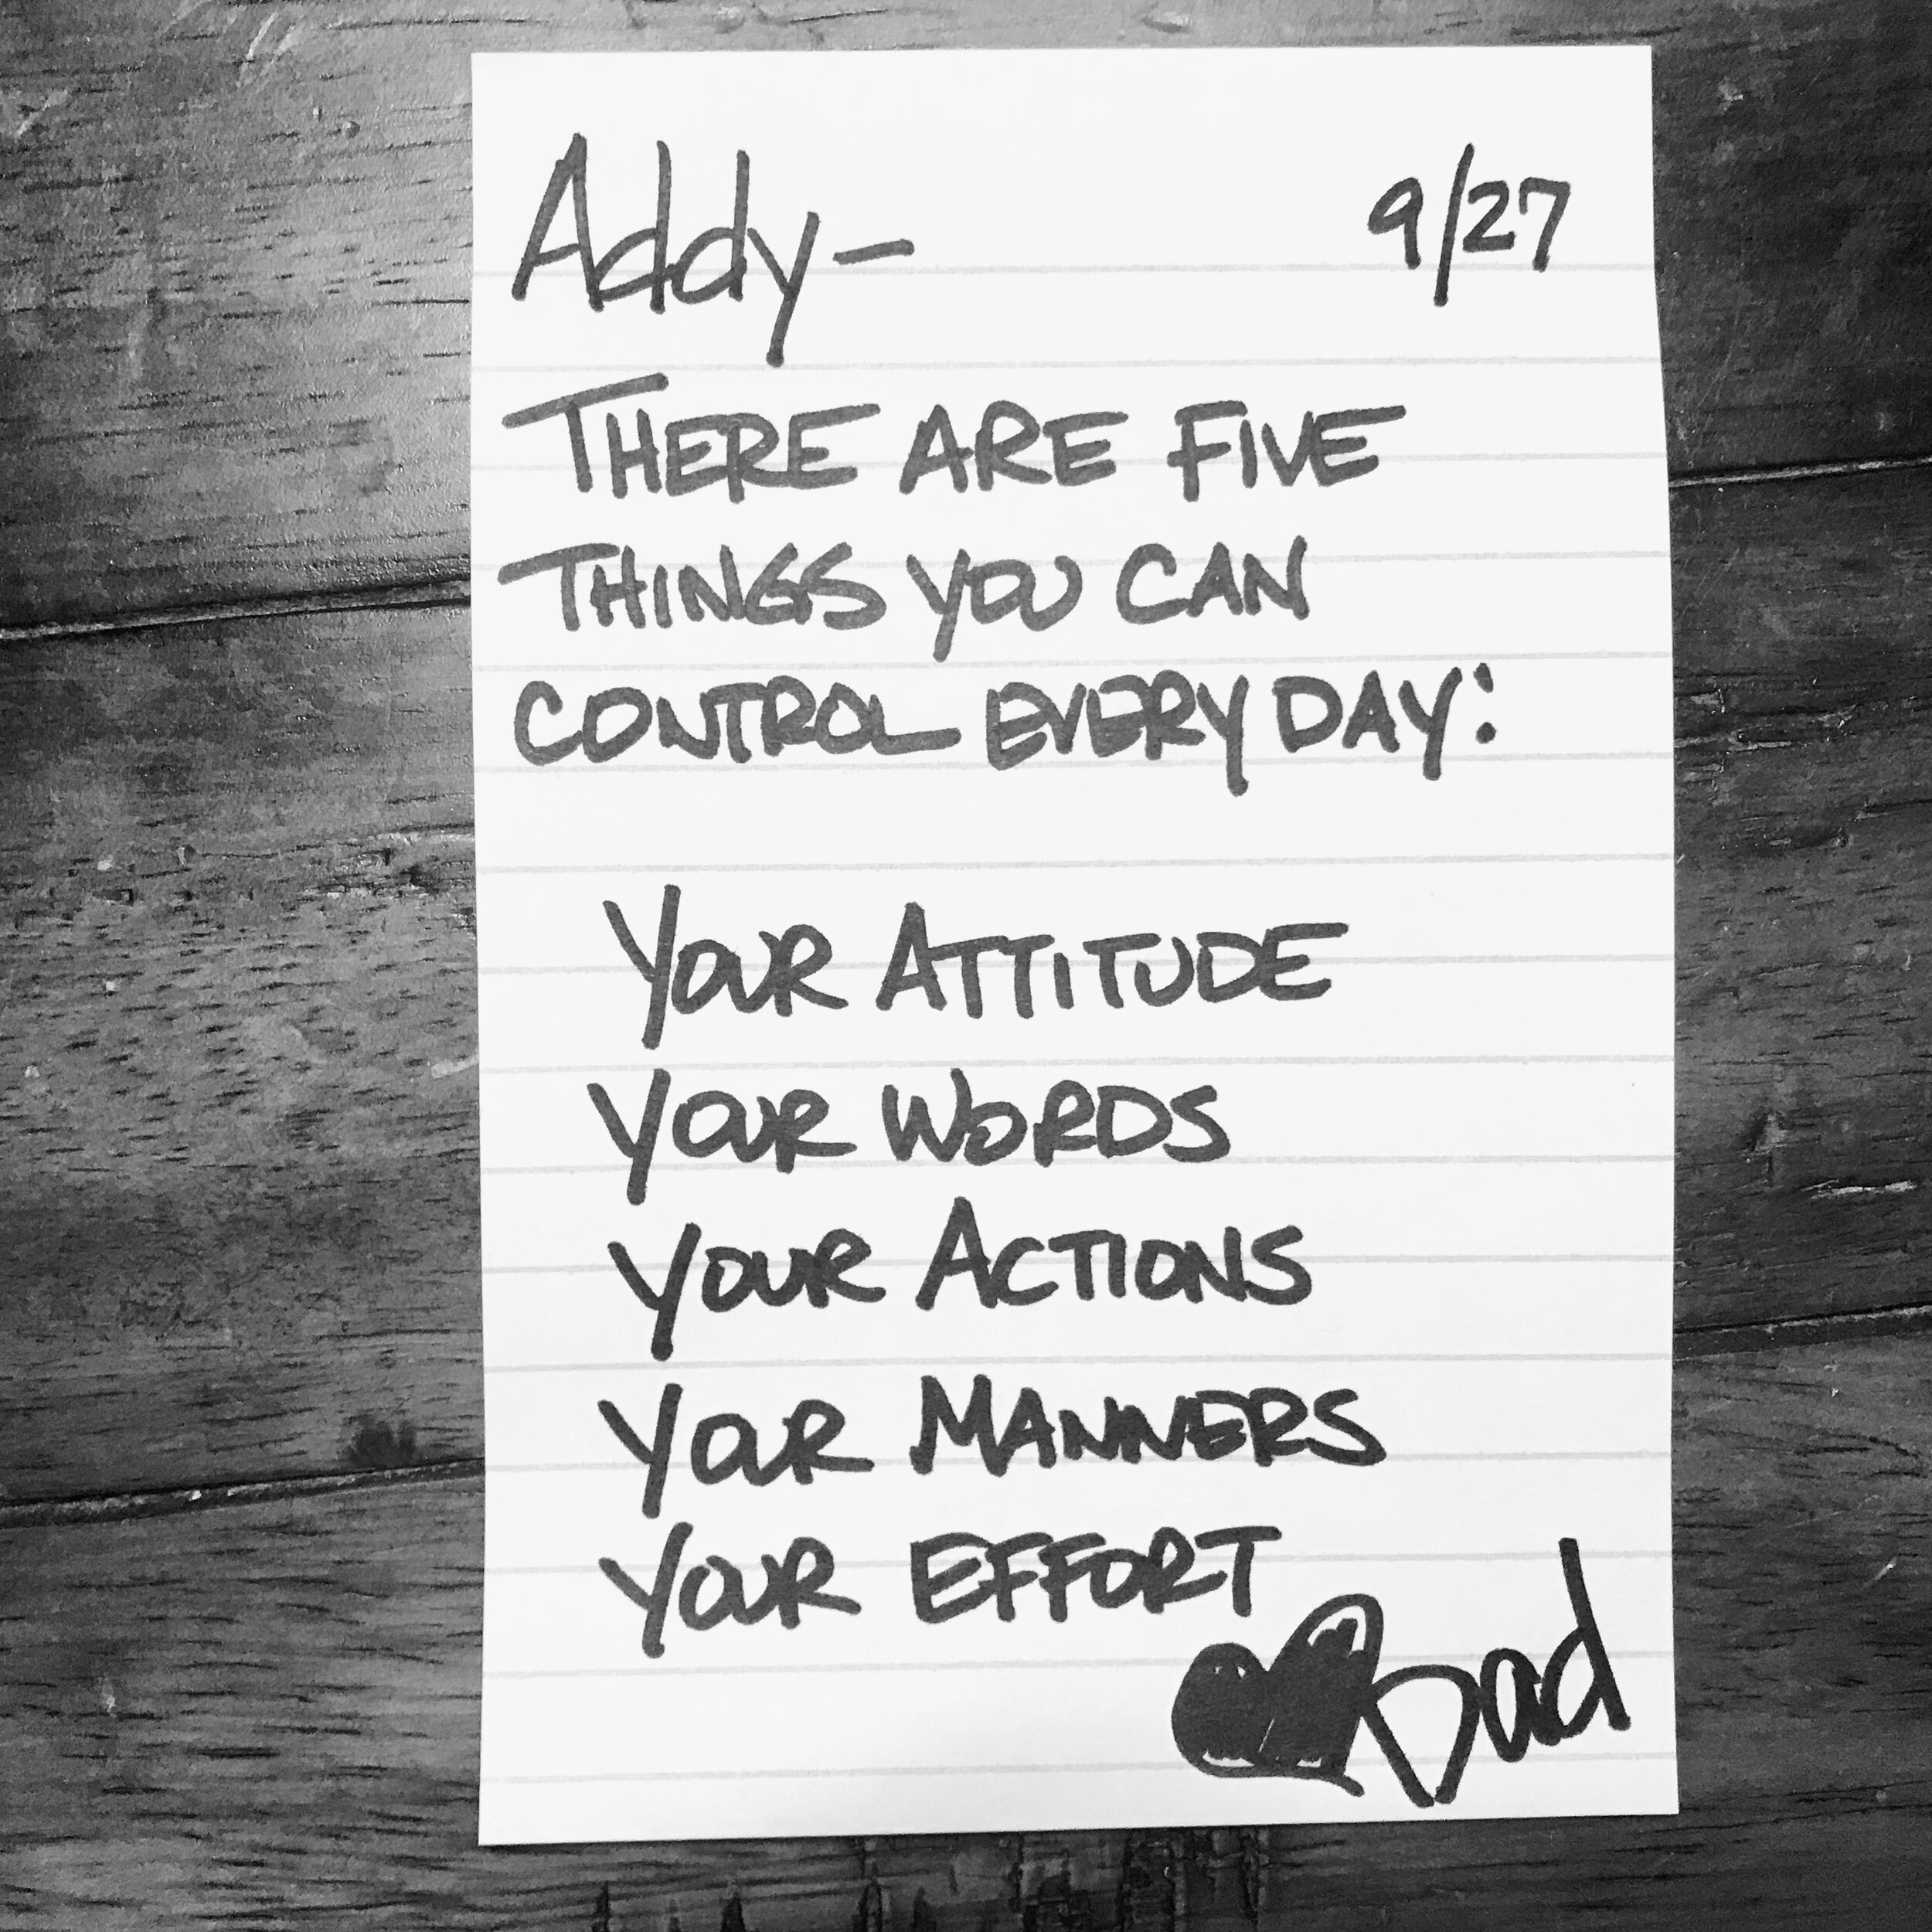 Addy- 9/27
THERE ARE FIVE
THINGS YOU CAN
CONTROL EVERY DAY:
YOUR ATTITUDE
YOUR WORDS
YOUR ACTIONS
YOUR MANNERS
YOUR EFFORT
Dad